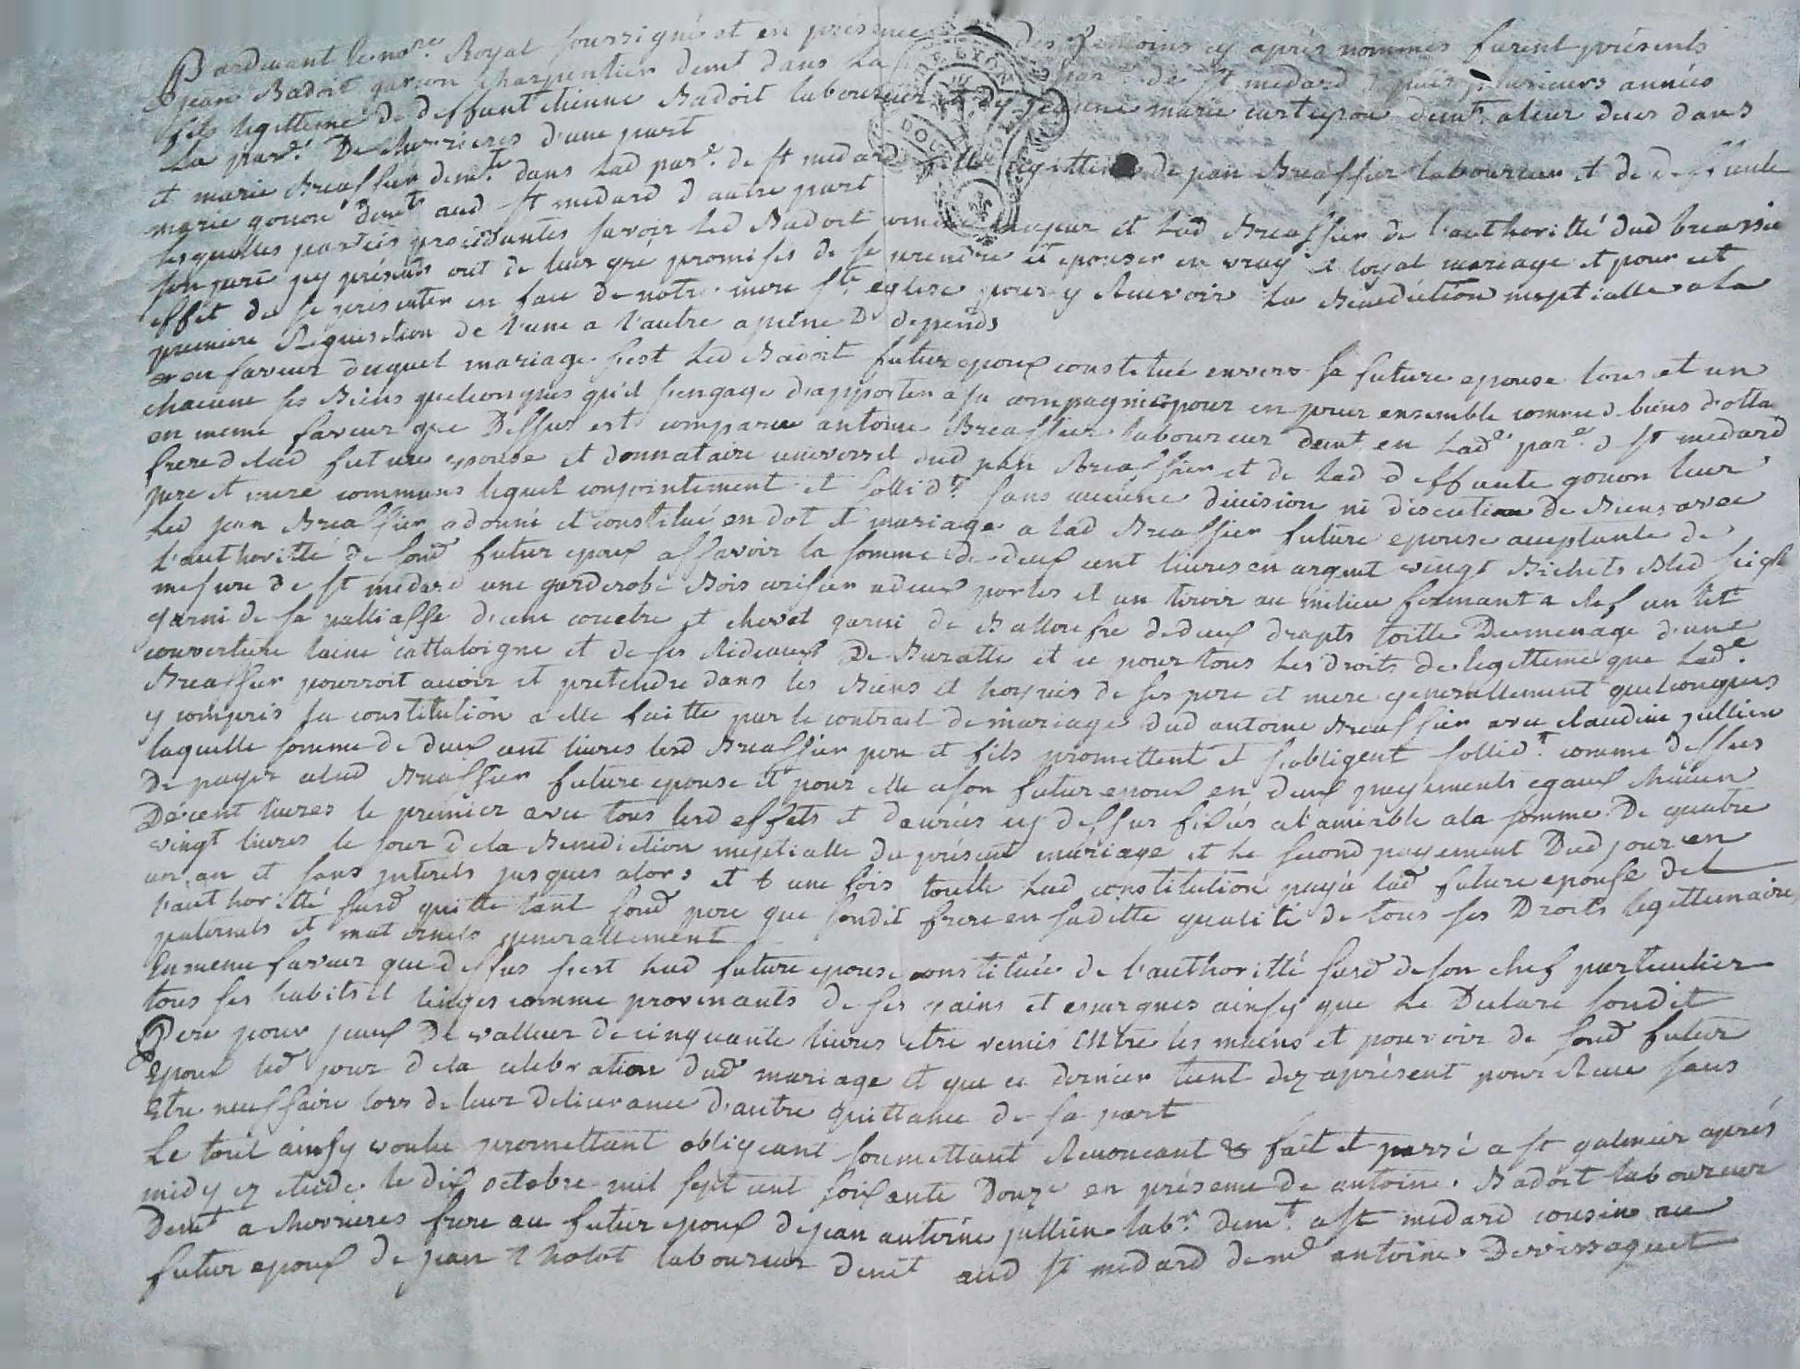 Pardevant le no.re Royal soussigné et en présence des temoins cy après nommés furent présents
jean Badoit garçon charpentier demt dans la par.e de st medard depuis plusieurs années
fils legitteme de deffunt etienne Badoit laboureur et de jeanne marie demt. a leur deces dans
La par.e De chevrieres d'une part
et marie Breassier demte dans lad par.e de st medard fille legitteme de jean Breassier laboureur et de deffunte
marie gonon demts aud st medard d'autre part
lesquelles parties procédantes savoir led Badoit comme majeur et lad Breassier de l'authoritté dud breassier
son pere jcy présent ont de leur gré promises de se prendre et epouser en vray et loyal mariage et pour cet
effet de se presenter en face de notre mere ste eglise pour y Recevoir la Benediction nuptialle a la
premiere Requisition de l'une a l'autre a peine D. depends
en faveur duquel mariage s'est led Badoit futur epoux constitué envers sa future epouse tous et un
chacuns ses Biens quelconques qu'il s'engage d'apporter a sa compagnie pour en jouir ensemble comme de biens dottaux
en meme faveur que Dessus est comparu antoine Breassier laboureur demt en Lad.e par.e de st medard
frere de lad future epouse et donnataire universel dud jean Breassier et de lad deffunte gonon leur
pere et mere communs lequel conjointement et sollidt. sans aucune division ni discution de Biens avec
Led jean Breassier a donné et constitué en dot et mariage a lad Breassier future epouse acceptante de
L'authoritté de sond futur epoux assavoir la somme de deux cent livres en argent vingt Bichets Bled seigle
mesure de st medard une garderobe Bois cerisier a deux portes et un tiroir au milieu fermant a clef un lit
garni de sa palliasse d'une couetre et chevet garni de Balloufre de deux draps toille Du menage d'une
couverture laine cattaloigne et de ses Rideaux De Buratte et ce pour tous les Droits de legitteme que Lad.e
Breassier pourroit avoir et pretendre dans les Biens et hoyries de ses pere et mere generallement quelconques
y compris la constitution a elle faitte par le contract de mariage dud antoine Breassier avec claudine jullien
laquelle somme de deux cent livres lesd Breassier pere et fils promettent et s'obligent sollidt. comme dessus
De payer a lad Breassier future epouse et pour elle a son futur epoux en deux payements egaux chacun
De cent livres le premier avec tous lesd effets et denrées cy dessus fixés a l'amiable a la somme De quatre
vingt livres le jour de la Benediction nuptialle du présent mariage et le second payement Dud jour en
un an et sans jnterets jusques alors et une fois toutte lad constitution payée lad future epouse de l
l'authoritté susd quitte tant sond pere que sondit frere en saditte qualité de tous ses Droits legittimaires
paternels et maternels generallement
En meme faveur que dessus s'est lad future epouse constituée de l'authoritté susd de son chef particulier
tous ses habits et linges comme provenants de ses gains et epargnes ainsy que le Declare sondit
Pere pour jceux De valleur de cinquante livres etre remis entre les mains et pouvoir de sond futur
Epoux led jour de la celebration dud mariage et que ce dernier tient dez a présent pour Recu sans
Etre necessaire lors de leur delivrance d'autre quittance de sa part
Le tout ainsy voulu promettant obligeant soumettant Renoncant & fait et passé a st galmier aprés
midy ez etude le dix octobre mil sept cent soixante Douze en présence de antoine Badoit laboureur
Demt a chevrieres frere au futur epoux de jean antoine jullien labr. demt. a st medard cousin au
futur epoux de jean tholot laboureur demt aud st medard de me antoine Devissaguet